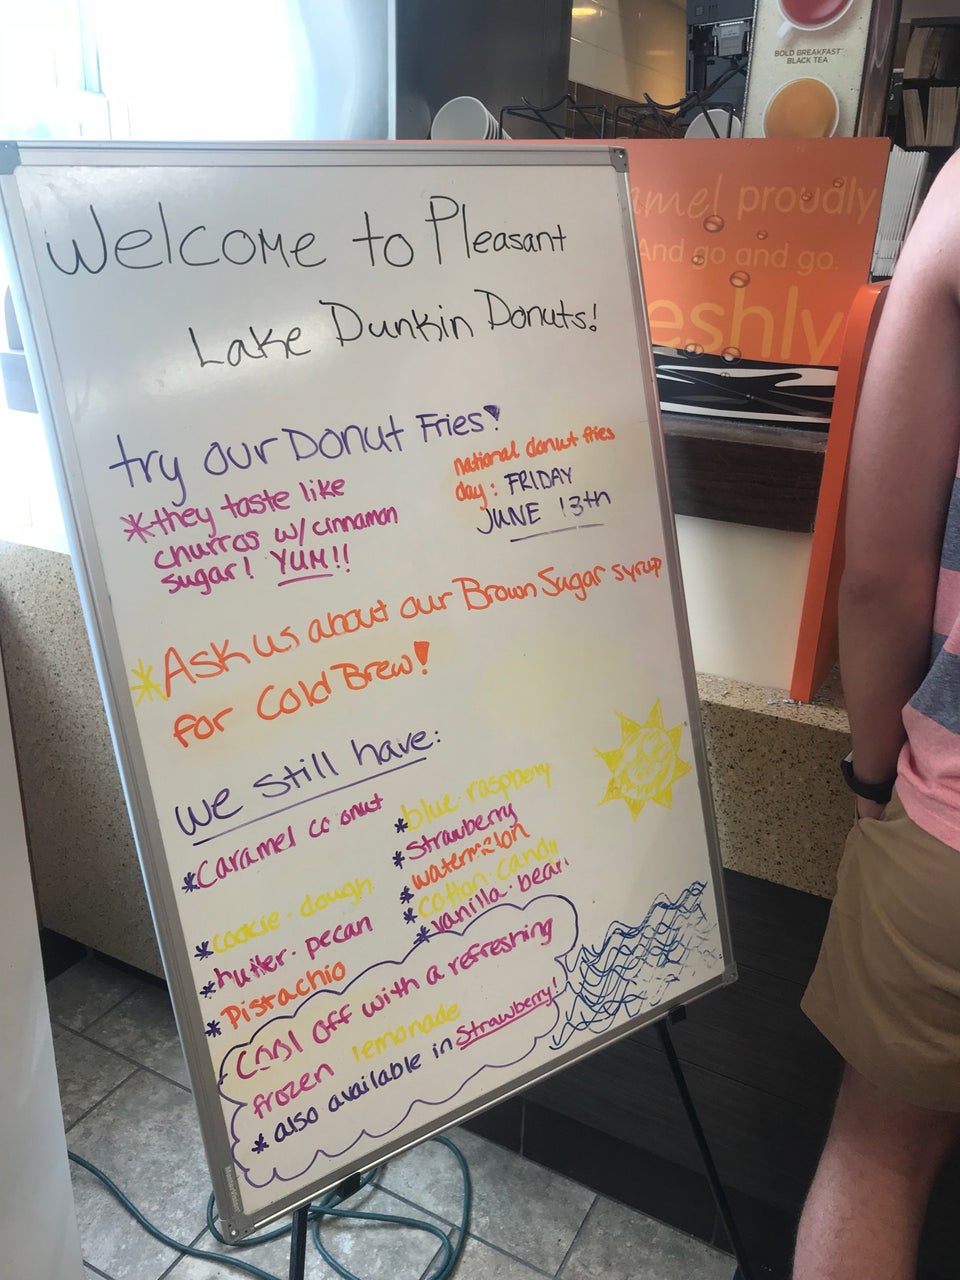 BOLD BREAKFAST™
BLACK TEA
amel proudly
And go and go.
eshly
Welcome to Pleasant
Lake Dunkin Donuts!
try our Donut Fries!
*they taste like
churros w/cinnamon
sugar! YUM!!
national donut fries
day: FRIDAY
JUNE 13th
*Ask us about our Brown Sugar syrup
for Cold Brew!
we still have:
*Caramel co onut
*cookie·dough
*butter·pecan
*Pistachio
*blue·raspberry
*strawberry
*watermelon
*cotton·candy
*vanilla·bean
Cool off with a refreshing
frozen lemonade
*also available in Strawberry!